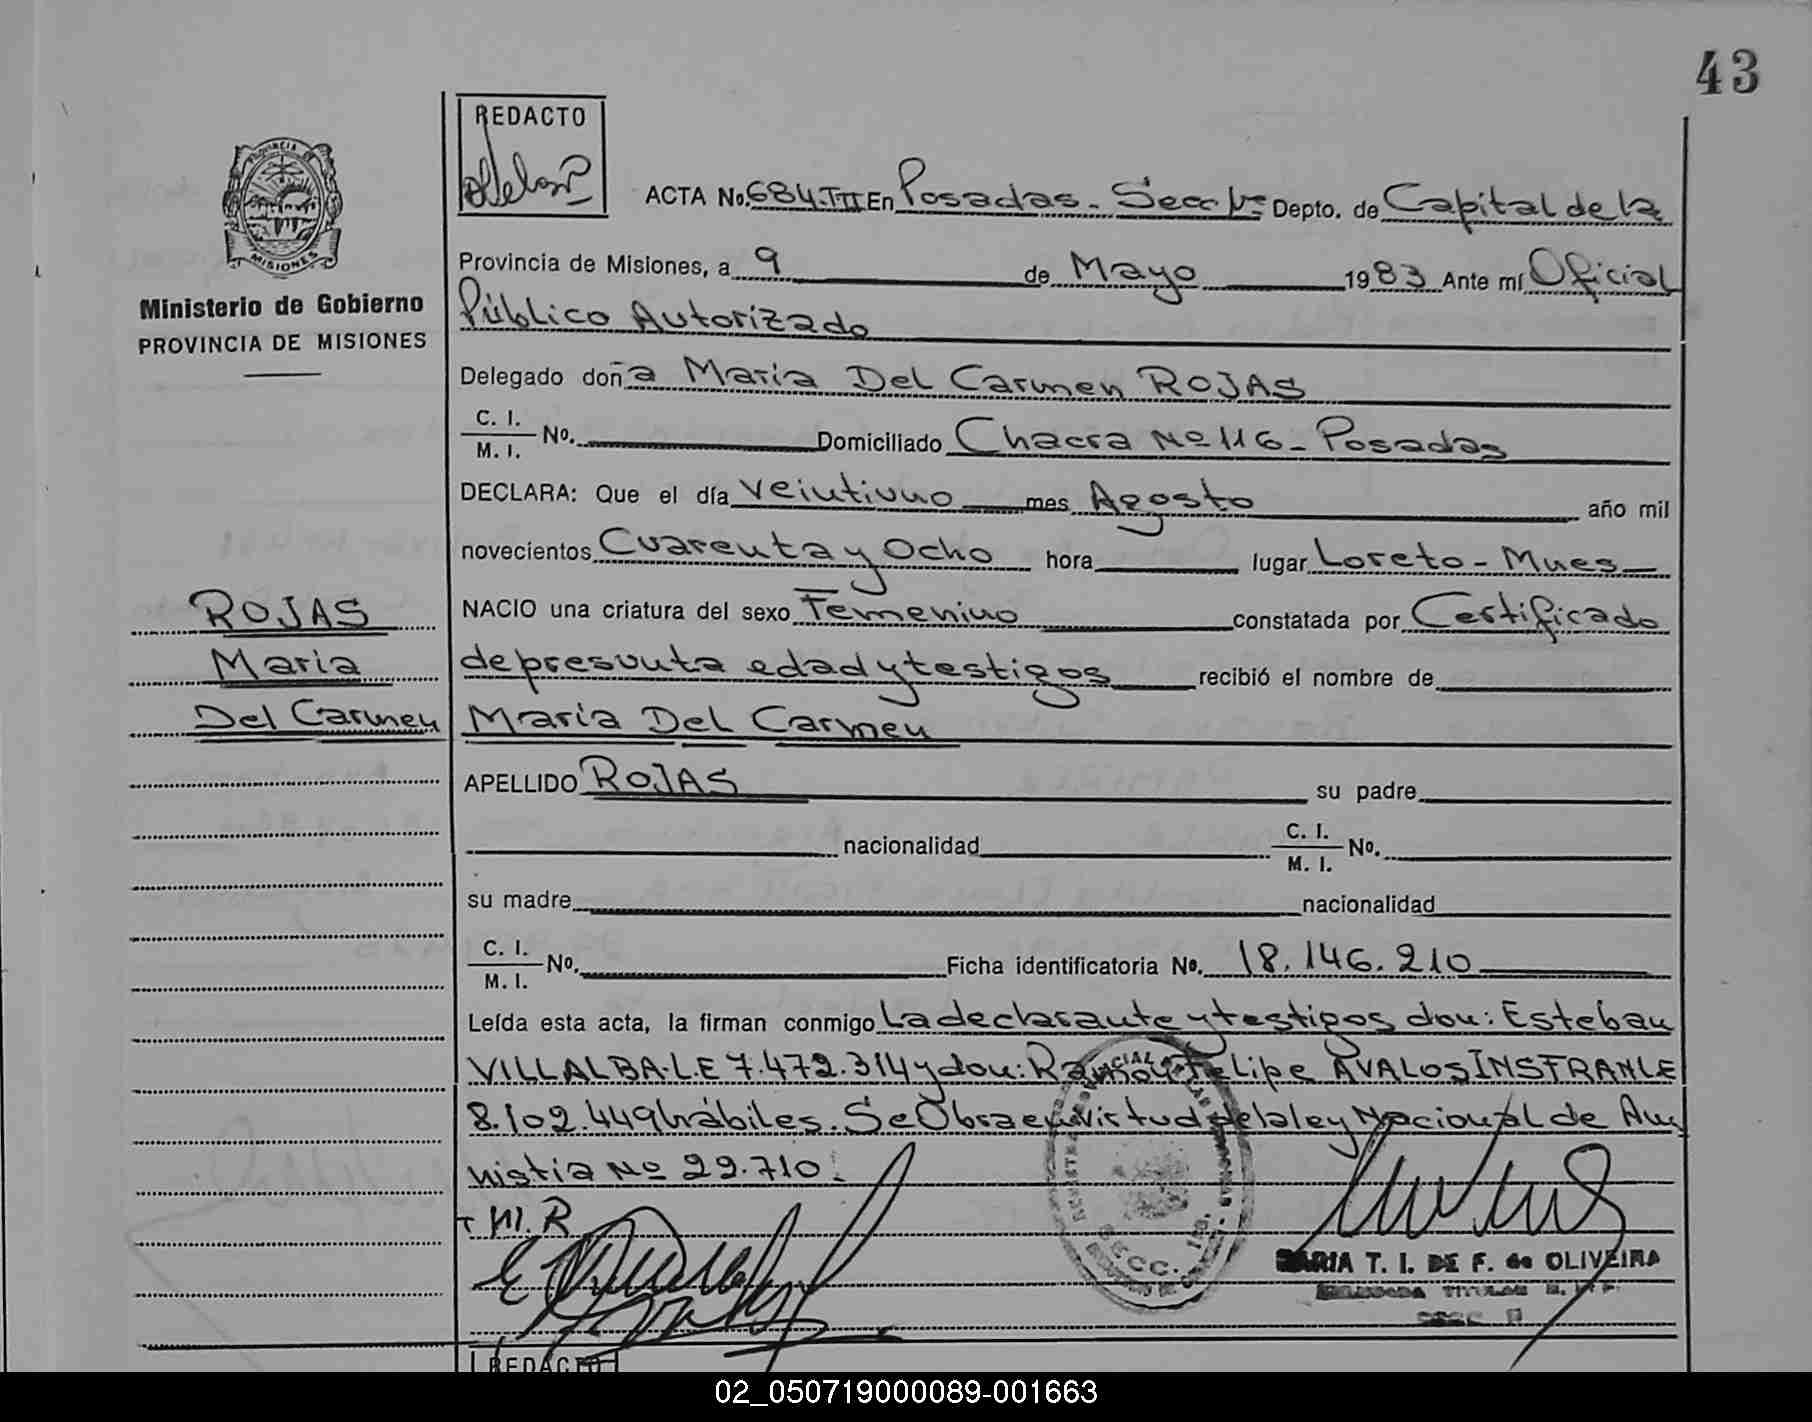 43
REDACTO
PROVINCIA DE
MISIONES
Ministerio de Gobierno
PROVINCIA DE MISIONES
ACTA No. 684-TIII En Posadas - Secc 1ra Depto. de Capital de la
Provincia de Misiones, a 9 de Mayo 1983 Ante mí Oficial
Público Autorizado
Delegado doña Maria Del Carmen ROJAS
C. I.
M. I. No. Domiciliado Chacra Nº 116 - Posadas
DECLARA: Que el día veintiuno mes Agosto año mil
novecientos Cuarenta y Ocho hora lugar Loreto - Mnes
NACIO una criatura del sexo Femenino constatada por Certificado
de presunta edad y testigos recibió el nombre de
Maria Del Carmen
ROJAS
Maria
Del Carmen
APELLIDO ROJAS su padre
nacionalidad C. I.
M. I. No.
su madre nacionalidad
C. I.
M. I. No. Ficha identificatoria No. 18.146.210
Leída esta acta, la firman conmigo La declarante y testigos don: Esteban
VILLALBA L.E 7.472.314 y don: Ramon Felipe AVALOS INSFRAN LE
8.102.449 hábiles. Se Obra en virtud de la ley Nacional de Am
nistia Nº 22.710.
M. R
SECC. 1ra.
MARIA T. I. DE F. de OLIVEIRA
REDACTO
02_050719000089-001663